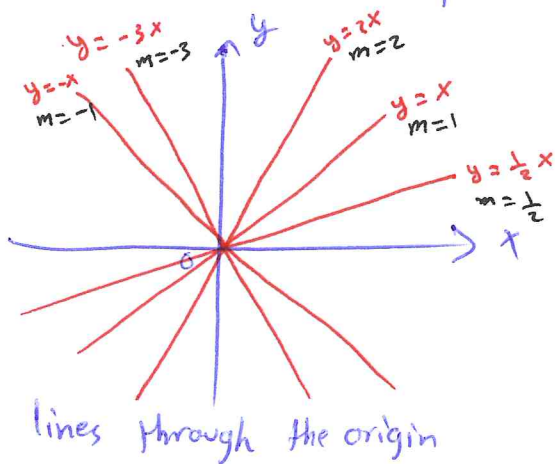 y
y = -3x
m = -3
y = 2x
m = 2
y = -x
m = -1
y = x
m = 1
y = 1/2 x
m = 1/2
x
0
lines through the origin